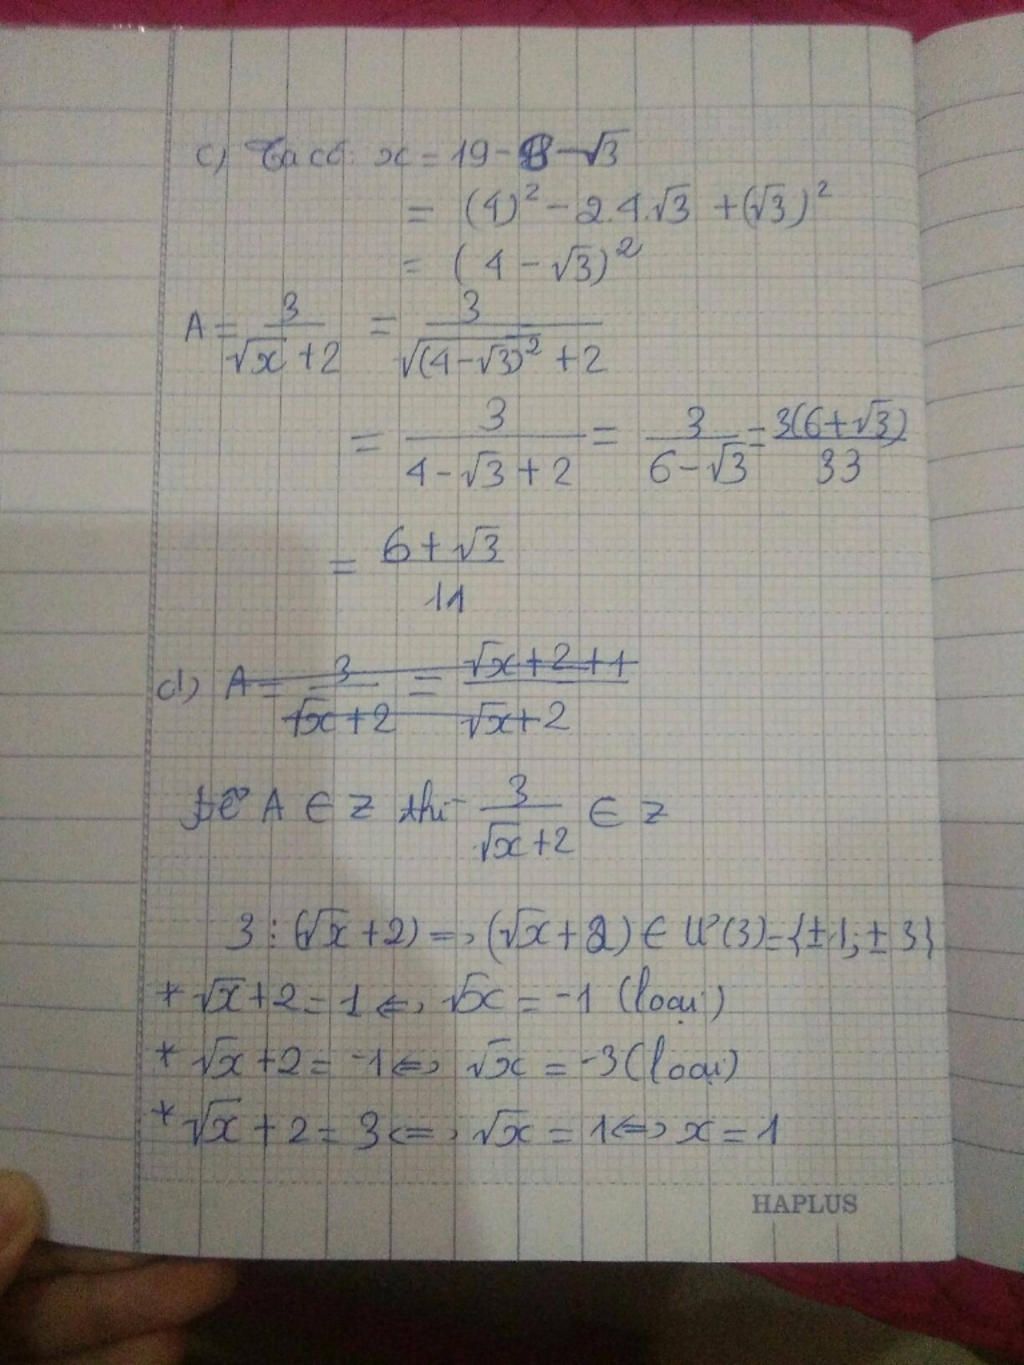 c) Ta có: x = 19 - 8 - √3
= (4)² - 2.4.√3 + (√3)²
= (4 - √3)²
A = 3/(√x + 2) = 3/(√(4 - √3)² + 2)
= 3/(4 - √3 + 2) = 3/(6 - √3) = 3(6 + √3)/33
= (6 + √3)/11
d) A = 3/(√x + 2) = (√x + 2 + 1)/(√x + 2)
Để A ∈ Z thì 3/(√x + 2) ∈ Z
3 ⋮ (√x + 2) => (√x + 2) ∈ Ư(3) = {±1; ±3}
* √x + 2 = 1 <=> √x = -1 (loại)
* √x + 2 = -1 <=> √x = -3 (loại)
* √x + 2 = 3 <=> √x = 1 <=> x = 1
HAPLUS